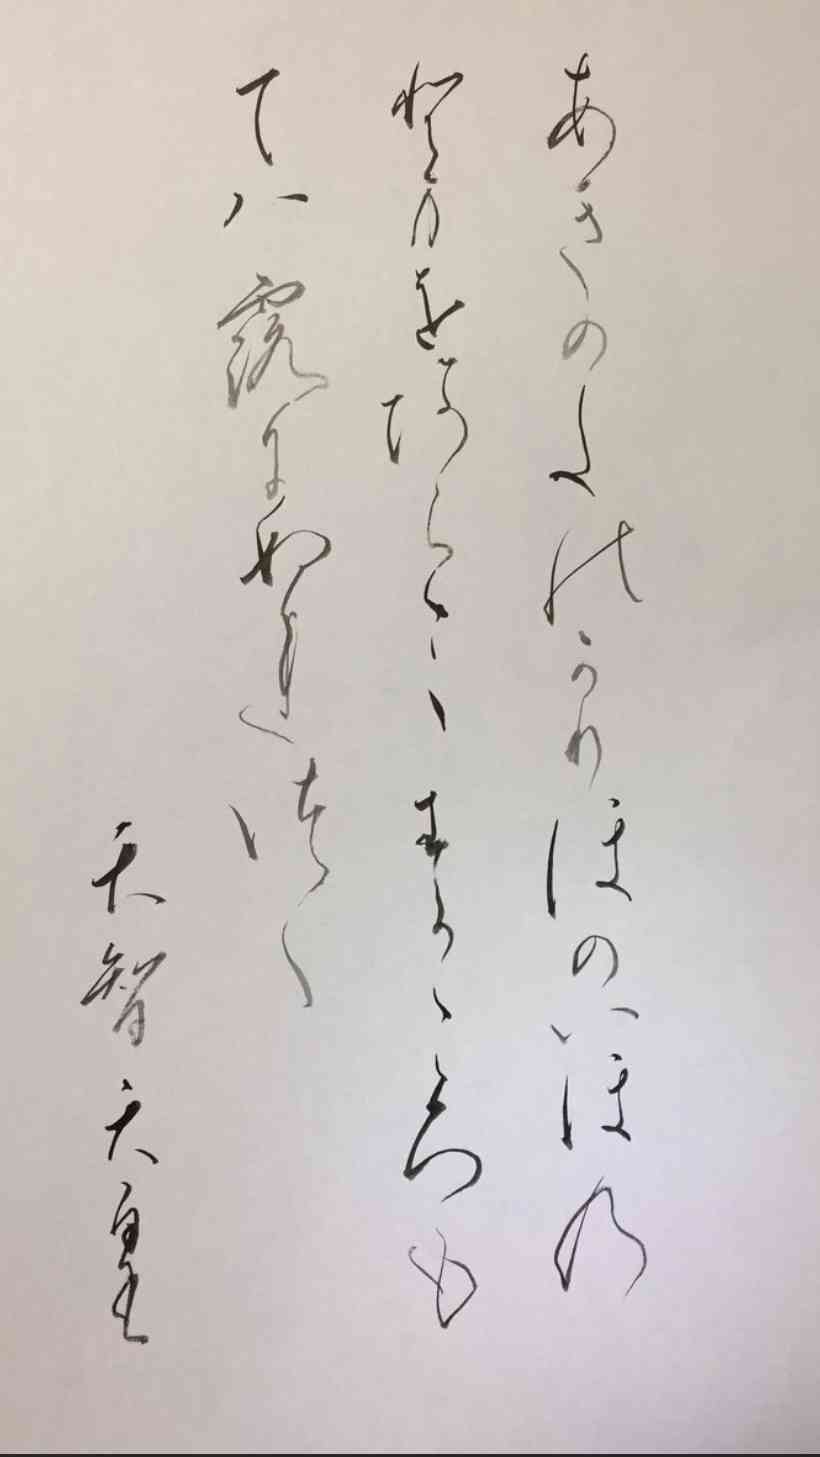 あきのたのかりほのいほの
とまをあらみわかころも
ては露にぬれつゝ
天智天皇